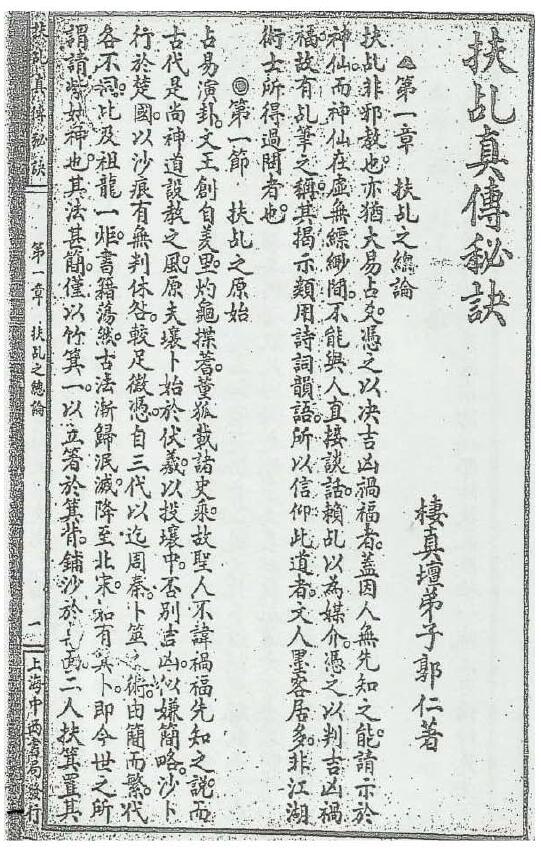 扶乩真傳秘訣
棲真壇弟子郭仁著
△第一章　扶乩之總論
扶乩非邪教也。亦猶大易占爻。憑之以决吉凶禍福者。蓋因人無先知之能。請示於
神仙。而神仙在虛無縹緲間。不能與人直接談話。賴乩以為媒介。憑之以判吉凶禍
福。故有乩筆之稱。其揭示類用詩詞韻語。所以信仰此道者。文人墨客居多。非江湖
術士所得過問者也。
◎第一節　扶乩之原始
占易演卦。文王創自羑里。灼龜揲蓍。董狐載諸史乘。故聖人不諱禍福先知之說。而
古代是尚神道設教之風。原夫壤卜始於伏羲。以投壤中否別吉凶。似嫌簡略。沙卜
行於楚國。以沙痕有無判休咎。較足徵憑。自三代以迄周秦。卜筮術。由簡而繁。代
各不同。比及祖龍一炬。書籍蕩然。古法漸歸泯滅。降至北宋。始有箕卜。即今世之所
謂請紫姑神也。其法甚簡。僅以竹箕一。以立箸於箕背。鋪沙於面。二人扶箕。置其
扶乩真傳秘訣　第一章　扶乩之總論　一　上海中西書局發行